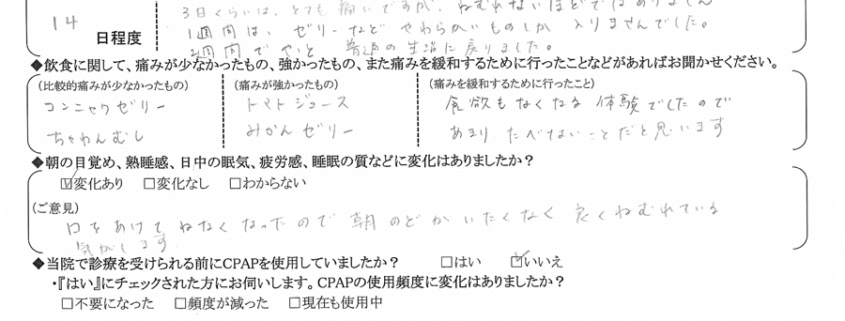 3日くらいは、とても痛いですが、ねむれないほどではありません
14
日程度
1週間は、ゼリーなど やわらかいものしか 入りませんでした。
2週間で やっと 普通の生活に戻りました。
◆飲食に関して、痛みが少なかったもの、強かったもの、また痛みを緩和するために行ったことなどがあればお聞かせください。
(比較的痛みが少なかったもの)
コンニャクゼリー
ちゃわんむし
(痛みが強かったもの)
トマトジュース
みかんゼリー
(痛みを緩和するために行ったこと)
食欲もなくなる 体験でしたので
あまり たべないことだと思います
◆朝の目覚め、熟睡感、日中の眠気、疲労感、睡眠の質などに変化はありましたか?
☑変化あり □変化なし □わからない
(ご意見)
口をあけて ねなくなったので 朝 のどがいたくなく 良くねむれている
気がします
◆当院で診療を受けられる前にCPAPを使用していましたか? □はい ☑いいえ
・『はい』にチェックされた方にお伺いします。CPAPの使用頻度に変化はありましたか?
□不要になった □頻度が減った □現在も使用中